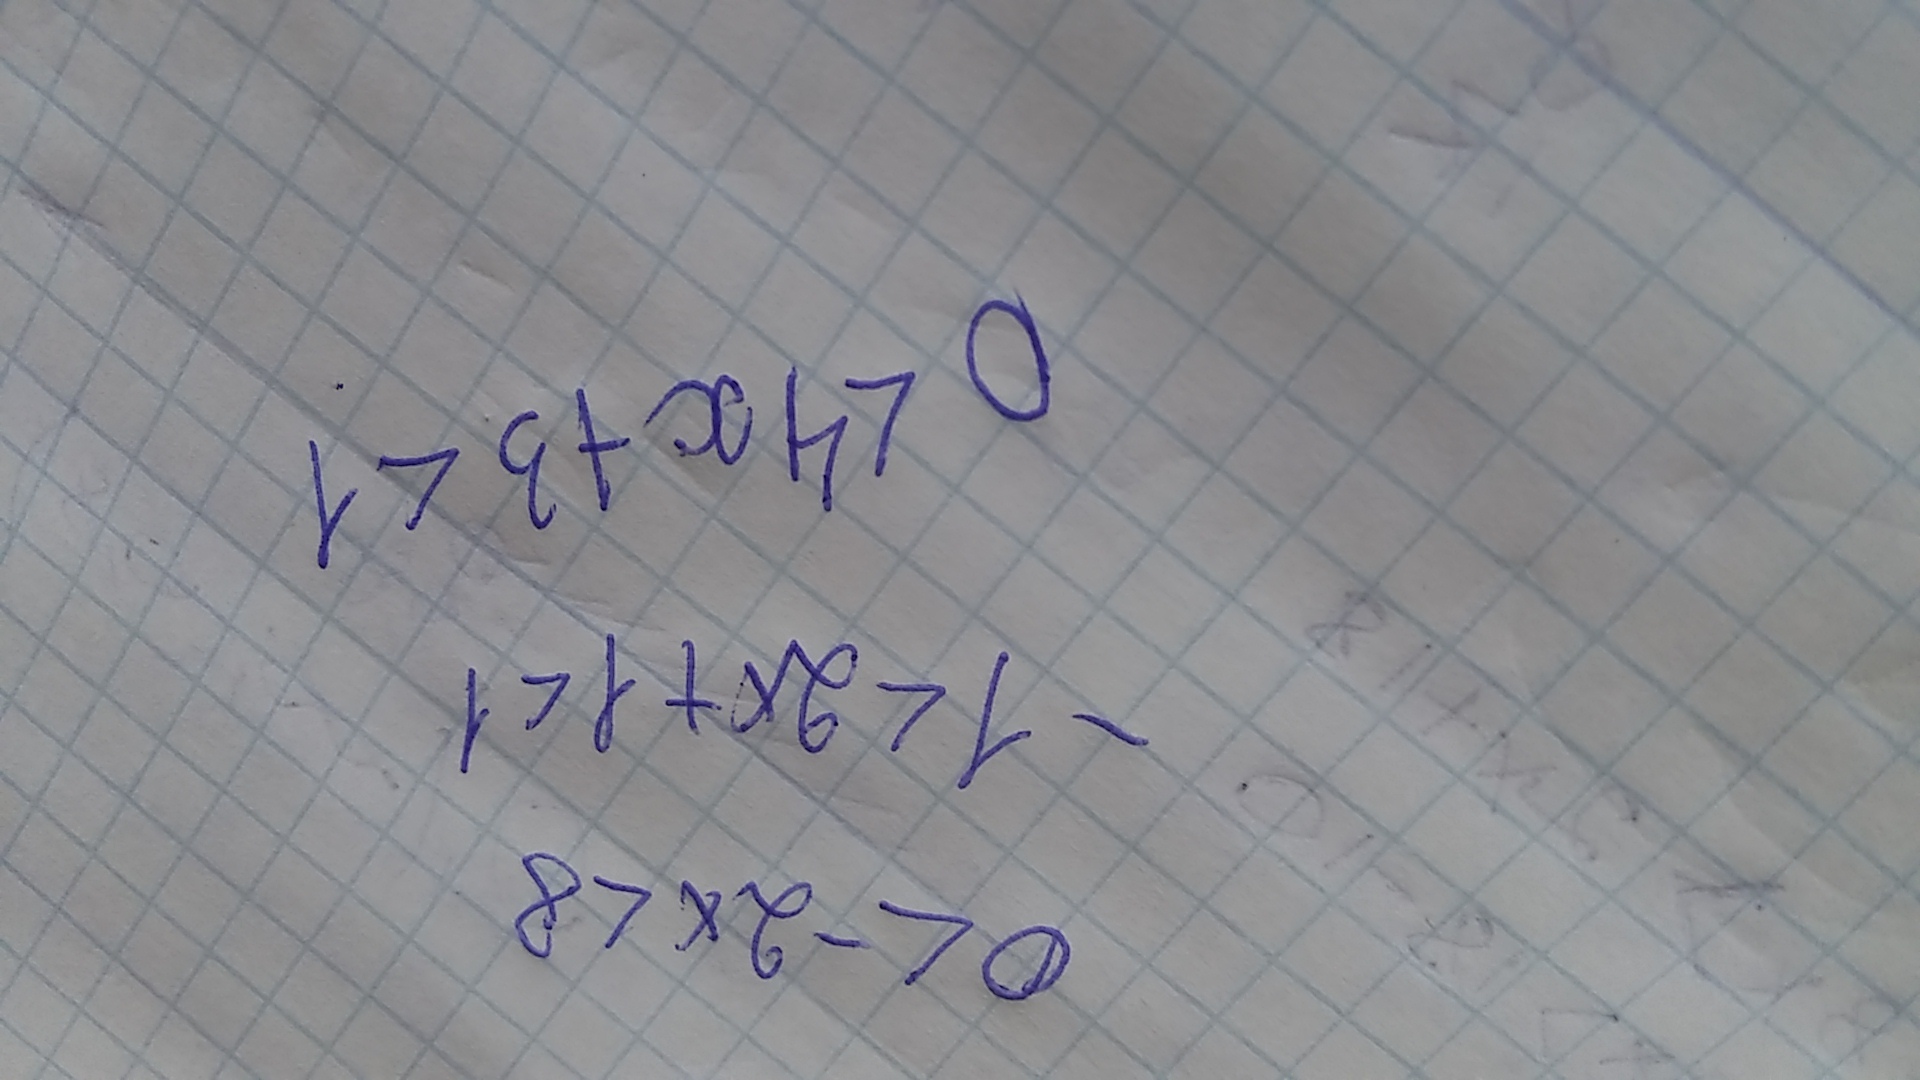 0 < -2x < 8
-1 < 2x + 1 < 1
0 < 4x + 3 < 1